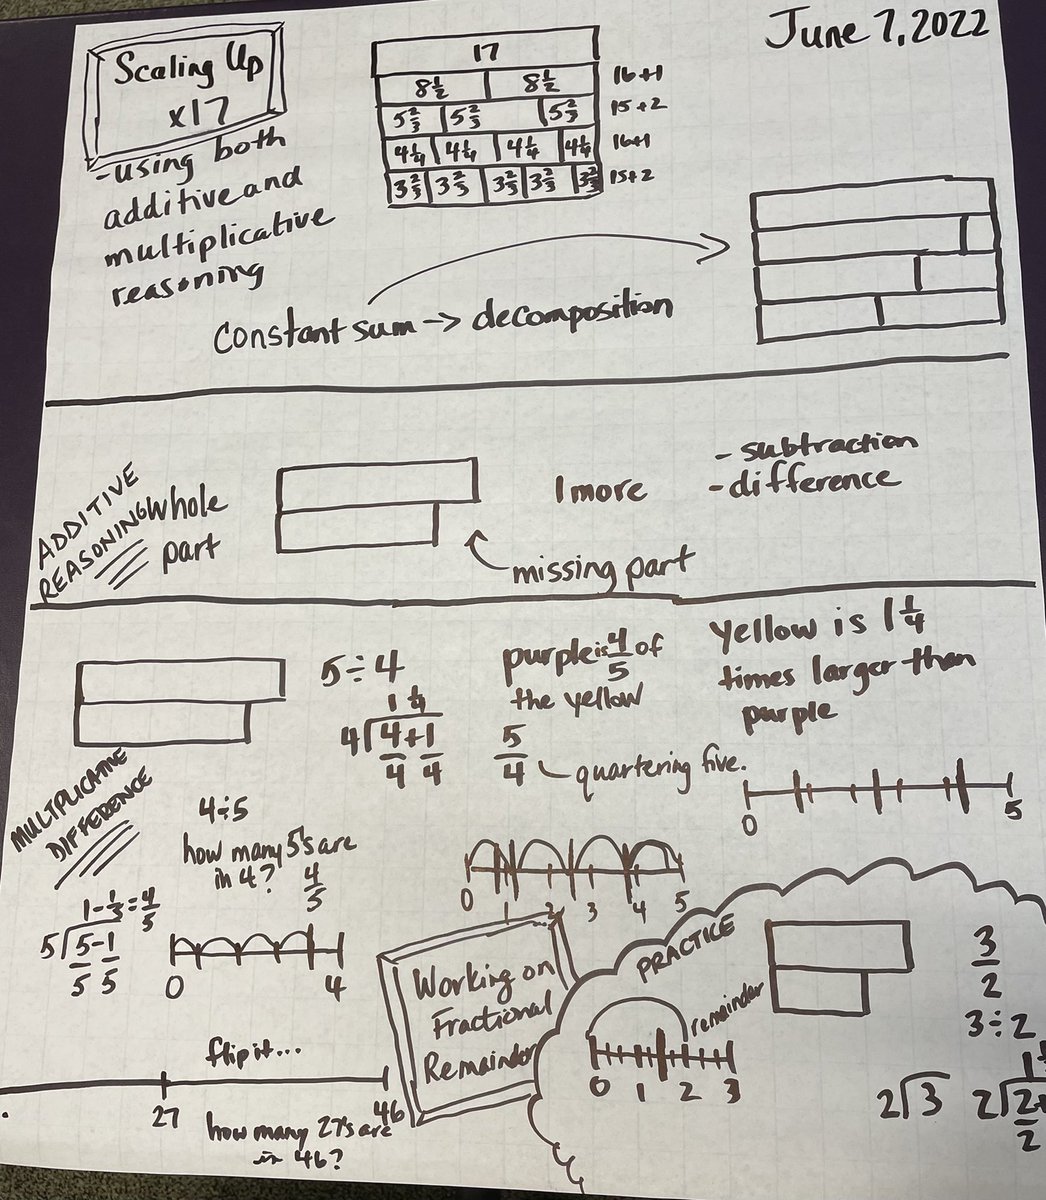 June 7, 2022
Scaling Up
x17
-using both
additive and
multiplicative
reasoning
17
8½ 8½ 16+1
5⅔ 5⅔ 5⅔ 15+2
4¼ 4¼ 4¼ 4¼ 16+1
3⅖ 3⅖ 3⅖ 3⅖ 3⅖ 15+2
constant sum → decomposition
ADDITIVE
REASONING
whole
part
1 more
- subtraction
- difference
missing part
5÷4
1 ¼
4⟌4+1
4 4
purple is 4/5 of
the yellow
5/4 quartering five.
yellow is 1¼
times larger than
purple
0 5
MULTPLICATIVE
DIFFERENCE
4÷5
how many 5's are
in 4? 4/5
0 1 2 3 4 5
5⟌5-1
5 5
0 4
Working on
Fractional
Remainder
PRACTICE
remainder
0 1 2 3
3/2
3÷2
2⟌3
flip it...
27 46
how many 27's are
in 46?